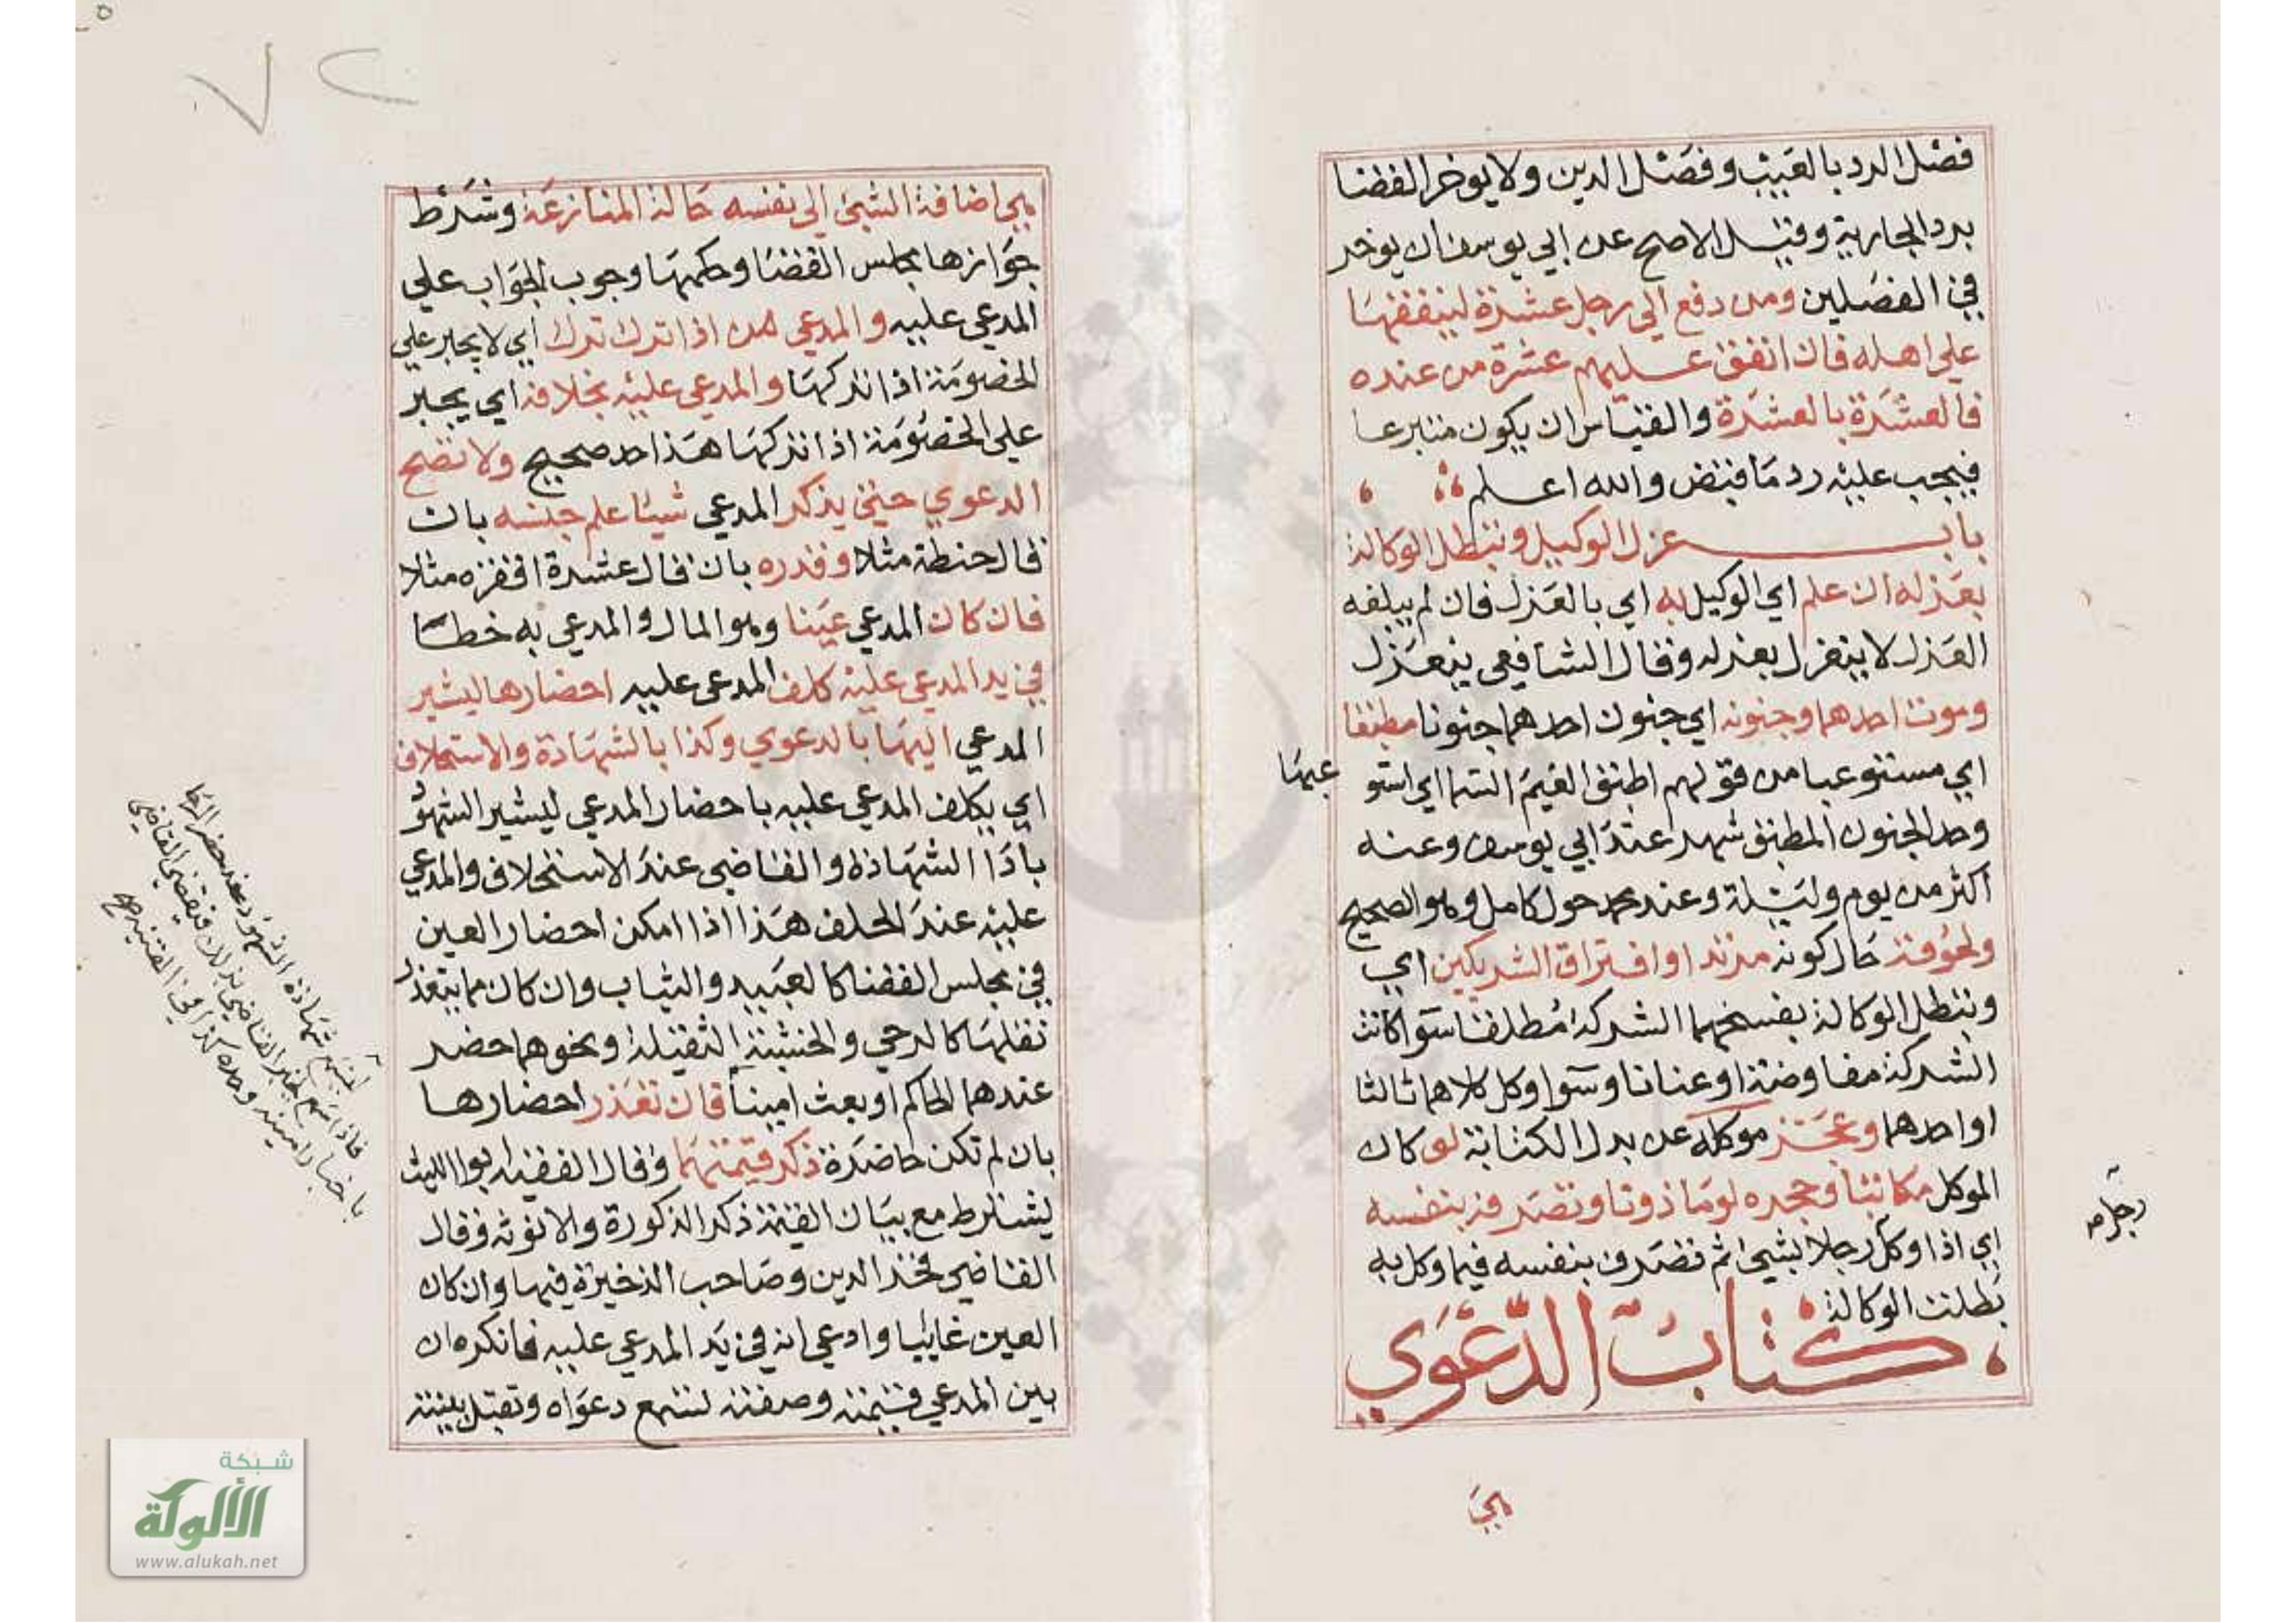 فصل الرد بالعيب وفصل الدين ولا يوخر القضا
برد الجارية وقيل الاصح عن ابي يوسف ان يوخر
في الفصلين ومن دفع الي رجل عشرة لينفقها
علي اهله فان انفق عليهم عشرة من عنده
فالعشرة بالعشرة والقياس ان يكون متبرعا
فيجب عليه رد ما قبض والله اعلم
باب عزل الوكيل وتبطل الوكالة
بعزله ان علم اي الوكيل به اي بالعزل فان لم يبلغه
العزل لا ينعزل بعزله وقال الشافعي ينعزل
وموت احدهما وجنونه اي جنون احدهما جنونا مطبقا
اي مستوعبا من قولهم اطبق الغيم السما اي استو
عبها
وحد الجنون المطبق شهر عند ابي يوسف وعنه
اكثر من يوم وليلة وعند محمد حول كامل وهو الصحيح
ولحوقه حال كونه مرتدا وافتراق الشريكين اي
وتبطل الوكالة بفسخهما الشركة مطلقا سوا كانت
الشركة مفاوضة او عنانا وسوا وكل كلاهما ثالثا
او احدهما وعجز موكله عن بدل الكتابة لو كان
الموكل مكاتبا وحجره لو ماذونا وتصرفه بنفسه
اي اذا وكل رجلا بشي ثم تصرف بنفسه فيما وكل به
بطلت الوكالة
كتاب الدعوي
هي
هي اضافة الشي الي نفسه حالة المنازعة وشرط
جوازها مجلس القضا وحكمها وجوب الجواب علي
المدعي عليه والمدعي من اذا ترك ترك اي لا يجبر علي
الخصومة اذا تركها والمدعي عليه بخلافه اي يجبر
علي الخصومة اذا تركها هذا حد صحيح ولا تصح
الدعوي حتي يذكر المدعي شيئا علم جنسه بان
قال حنطة مثلا وقدره بان قال عشرة اقفزه مثلا
فان كان المدعي عينا وهو المال والمدعي به خطا
في يد المدعي عليه كلف المدعي عليه احضارها ليشير
المدعي اليها بالدعوي وكذا بالشهادة والاستحلاف
اي يكلف المدعي عليه باحضار المدعي ليشير الشهو
باذا الشهادة والقاضي عند الاستحلاف والمدعي
عليه عند الحلف هذا اذا امكن احضار العين
في مجلس القضا كالعبيد والثياب وان كان مما يتعذر
نقلها كالرحي والخشبة الثقيلة ونحوهما حضر
عندهما الحاكم او بعث امينا فان تعذر احضارها
بان لم تكن حاضرة ذكر قيمتها وقال الفقيه ابوا الليث
يشترط مع بيان القيمة ذكر الذكورة والانوثه وقال
القاضي فخر الدين وصاحب الذخيرة فيها وان كان
العين غايبا وادعي انه في يد المدعي عليه فانكره ان
بين المدعي قيمته وصفته تسمع دعواه وتقبل بينته
شبكة
الألوكة
www.alukah.net